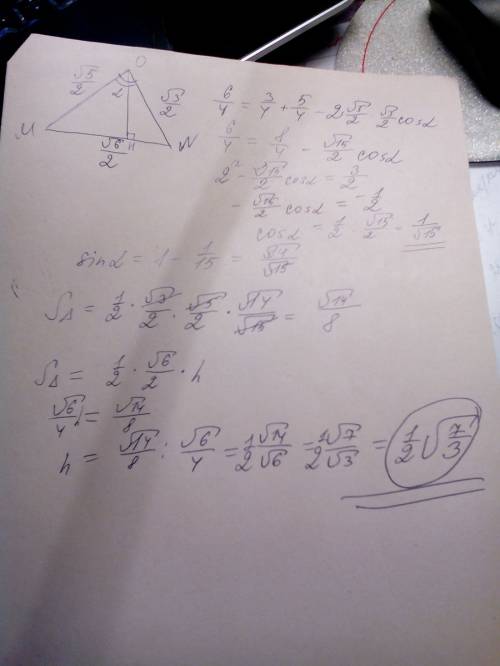 O
√5/2 2 √3/2
M N
√6/2 H
6/4 = 3/4 + 5/4 - 2 √5/2 √3/2 cosα
6/4 = 8/4 - √15/2 cosα
2 - √15/2 cosα = 3/2
- √15/2 cosα = -1/2
cosα = 1/2 · √15/2 = 1/√15
sinα = 1 - 1/15 = √14/√15
S△ = 1/2 · √3/2 · √5/2 · √14/√15 = √14/8
S△ = 1/2 · √6/2 · h
√6/4 h = √14/8
h = √14/8 : √6/4 = 1/2 √14/√6 = 1/2 √7/√3 = 1/2 √7/3